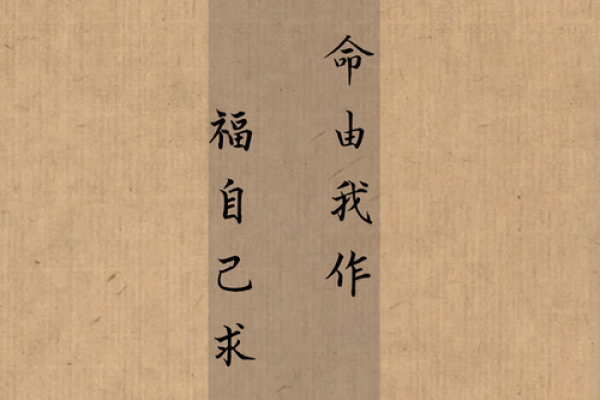 命由我作
福自己求